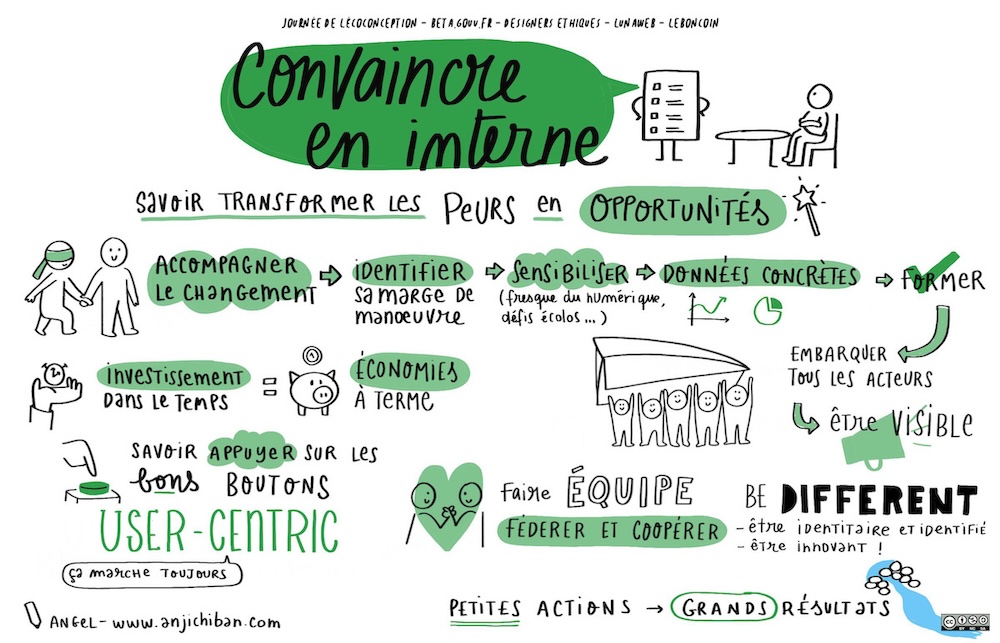 JOURNÉE DE L'ÉCOCONCEPTION - BETA.GOUV.FR - DESIGNERS ETHIQUES - LUNAWEB - LEBONCOIN
Convaincre
en interne
SAVOIR TRANSFORMER LES PEURS en OPPORTUNITÉS
ACCOMPAGNER
LE CHANGEMENT
IDENTIFIER
SA MARGE DE
MANOEUVRE
SENSIBILISER
(fresque du numérique,
défis écolos...)
DONNÉES CONCRÈTES
FORMER
EMBARQUER
TOUS LES ACTEURS
être VISIBLE
investissement
DANS LE TEMPS
=
ÉCONOMIES
À TERME
SAVOIR APPUYER SUR LES
bons BOUTONS
USER-CENTRIC
ça marche TOUJOURS
Faire ÉQUIPE
FÉDERER ET COOPÉRER
BE DIFFERENT
- être identitaire et identifié
- être innovant !
PETITES ACTIONS → GRANDS RÉSULTATS
ANGEL - www.anjichiban.com
CC BY NC SA